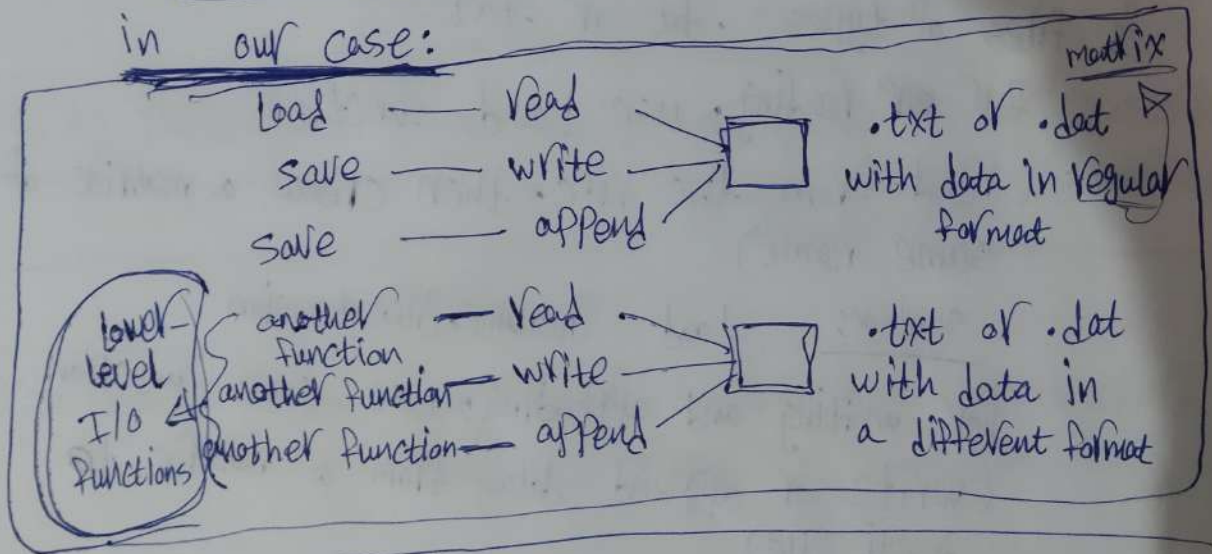 in our case:
matrix
Load — read
.txt or .dat
save — write
with data in regular
format
save — append
lower-
level
I/O
functions
another function — read
another function — write
another function — append
.txt or .dat
with data in
a different format